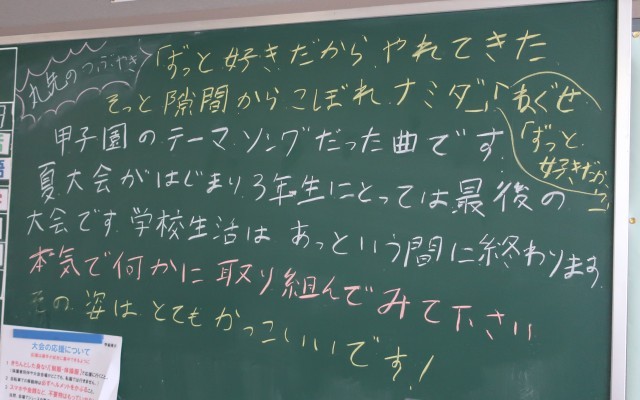 丸先のつぶやき
「ずっと好きだから、やれてきた
そっと隙間からこぼれナミダ」
ねぐせ
「ずっと
好きだから」
甲子園のテーマソングだった曲です。
夏大会がはじまり、3年生にとっては最後の
大会です。学校生活はあっという間に終わります。
本気で何かに取り組んでみて下さい
その姿はとてもかっこいいです!
大会の応援について